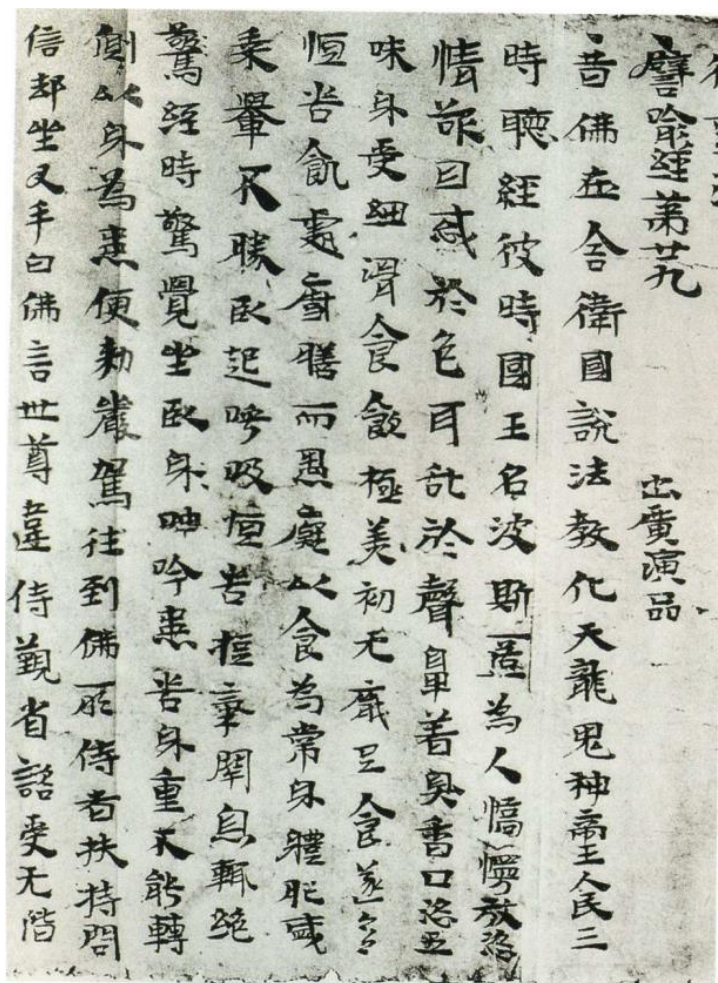 譬喻經第廿九 出廣演品
昔佛在舍衛國說法教化天龍鬼神帝王人民三
時聽經彼時國王名波斯匿為人憍放恣
情欲目惑於色耳乱於聲鼻著臭香口恣五
味身受細滑食飲極美初无厭足食遂多
恒苦飢處廚膳而愚癡以食為常身體肥盛
乘轝不勝臥起呼吸恒苦短氣閉息輒絕
驚經時驚覺坐臥身呻吟患苦身重不能轉
側以身為患便勑嚴駕往到佛所侍者扶持問
信却坐叉手白佛言世尊違侍覲省諮受无階